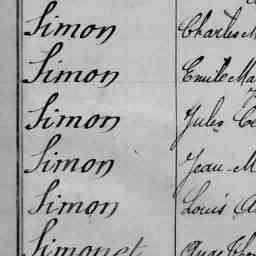 Simon Charles M
Simon Emile Ma
Simon Jules Ce
Simon Jean-M
Simon Louis A
Simonet Ange Tho